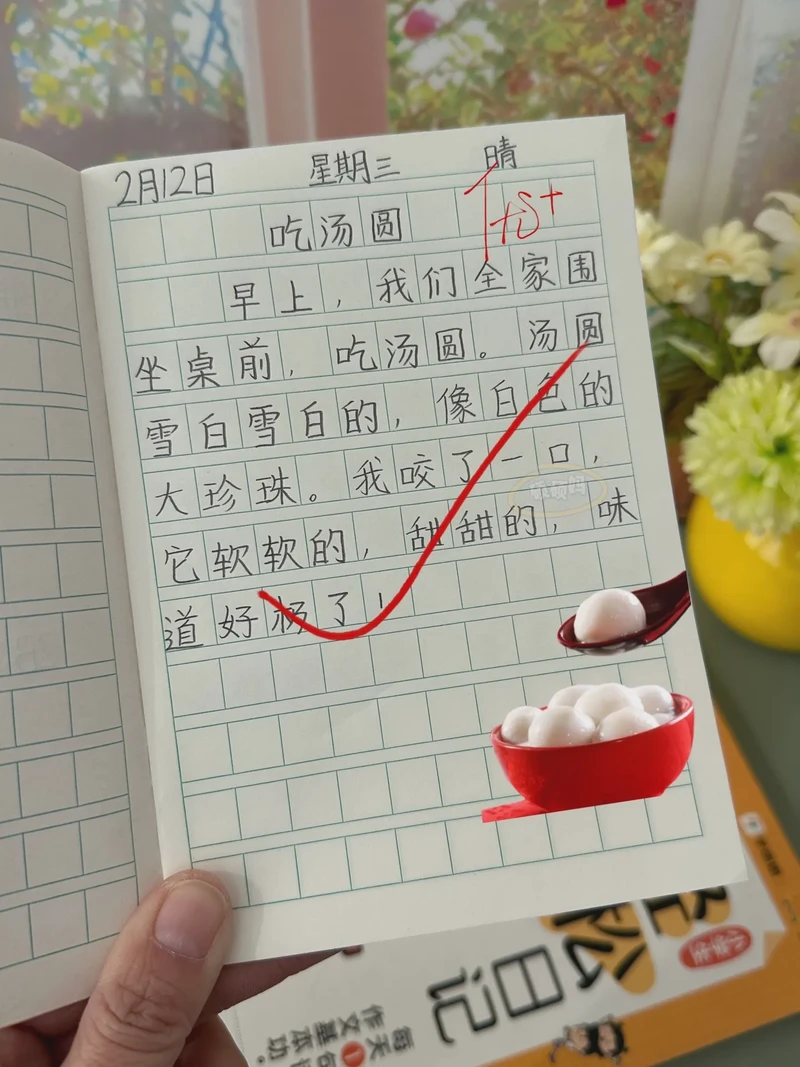 2月12日 星期三 晴
吃汤圆
早上，我们全家围
坐桌前，吃汤圆。汤圆
雪白雪白的，像白色的
大珍珠。我咬了一口，
它软软的，甜甜的，味
道好极了！
小学生
轻松日记
每天
作文基本功